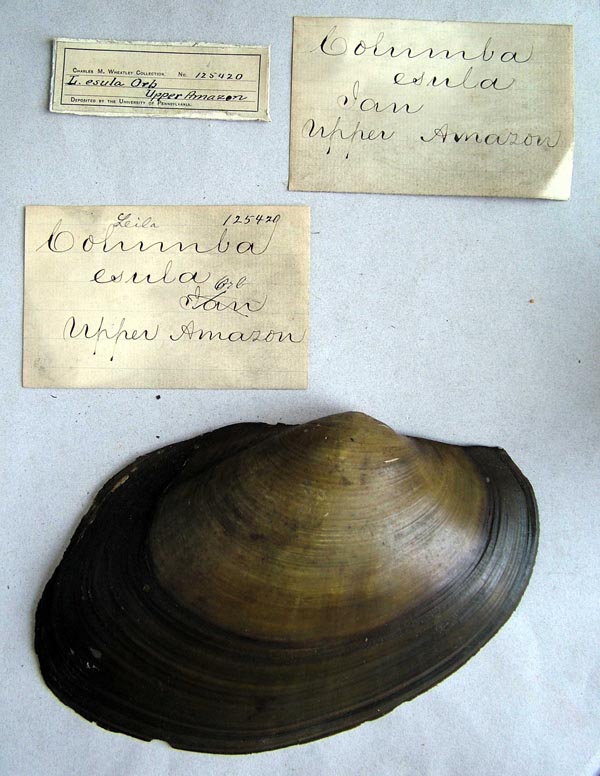 CHARLES M. WHEATLEY COLLECTION. No. 125420
L. esula Orb
Upper Amazon
DEPOSITED BY THE UNIVERSITY OF PENNSYLVANIA.
Columba
esula
Jan
Upper Amazon
Leila 125420
Columba
esula Orb
Jan
Upper Amazon